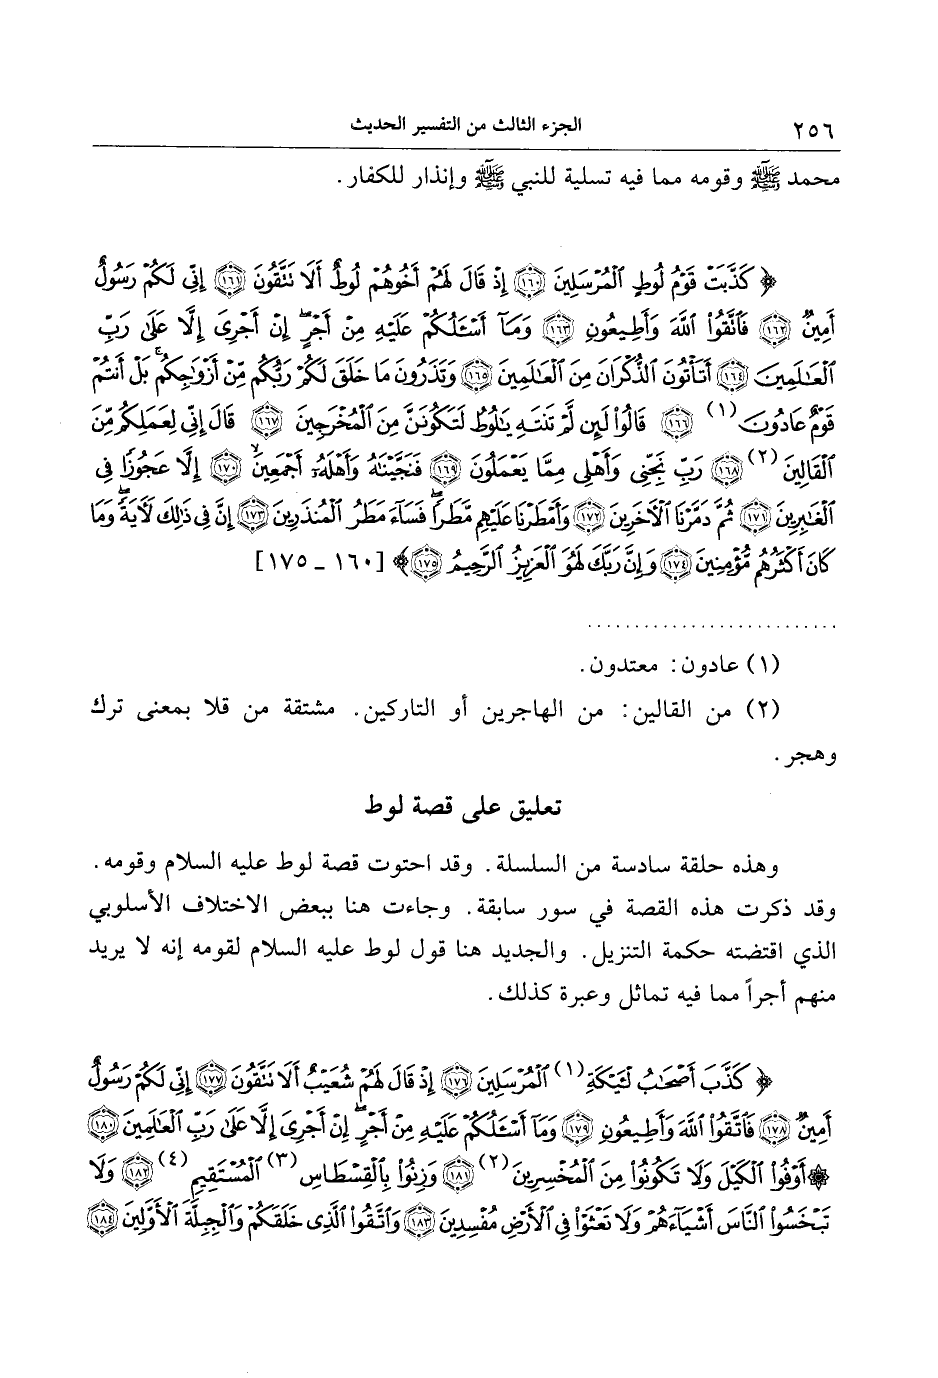 ٢٥٦ الجزء الثالث من التفسير الحديث
محمد ﷺ وقومه مما فيه تسلية للنبي ﷺ وإنذار للكفار.
﴿ كَذَّبَتْ قَوْمُ لُوطٍ الْمُرْسَلِينَ ﴿١٦٠﴾ إِذْ قَالَ لَهُمْ أَخُوهُمْ لُوطٌ أَلَا تَتَّقُونَ ﴿١٦١﴾ إِنِّي لَكُمْ رَسُولٌ
أَمِينٌ ﴿١٦٢﴾ فَاتَّقُوا اللَّهَ وَأَطِيعُونِ ﴿١٦٣﴾ وَمَا أَسْئَلُكُمْ عَلَيْهِ مِنْ أَجْرٍ إِنْ أَجْرِيَ إِلَّا عَلَى رَبِّ
الْعَالَمِينَ ﴿١٦٤﴾ أَتَأْتُونَ الذُّكْرَانَ مِنَ الْعَالَمِينَ ﴿١٦٥﴾ وَتَذَرُونَ مَا خَلَقَ لَكُمْ رَبُّكُم مِّنْ أَزْوَاجِكُم بَلْ أَنتُمْ
قَوْمٌ عَادُونَ (١) ﴿١٦٦﴾ قَالُوا لَئِن لَّمْ تَنتَهِ يَا لُوطُ لَتَكُونَنَّ مِنَ الْمُخْرَجِينَ ﴿١٦٧﴾ قَالَ إِنِّي لِعَمَلِكُم مِّنَ
الْقَالِينَ (٢) ﴿١٦٨﴾ رَبِّ نَجِّنِي وَأَهْلِي مِمَّا يَعْمَلُونَ ﴿١٦٩﴾ فَنَجَّيْنَاهُ وَأَهْلَهُ أَجْمَعِينَ ﴿١٧٠﴾ إِلَّا عَجُوزًا فِي
الْغَابِرِينَ ﴿١٧١﴾ ثُمَّ دَمَّرْنَا الْآخَرِينَ ﴿١٧٢﴾ وَأَمْطَرْنَا عَلَيْهِم مَّطَرًا فَسَاءَ مَطَرُ الْمُنذَرِينَ ﴿١٧٣﴾ إِنَّ فِي ذَلِكَ لَآيَةً وَمَا
كَانَ أَكْثَرُهُم مُّؤْمِنِينَ ﴿١٧٤﴾ وَإِنَّ رَبَّكَ لَهُوَ الْعَزِيزُ الرَّحِيمُ ﴿١٧٥﴾ ﴾ [١٦٠ ـ ١٧٥]
..........................
(١) عادون: معتدون.
(٢) من القالين: من الهاجرين أو التاركين. مشتقة من قلا بمعنى ترك
وهجر.
تعليق على قصة لوط
وهذه حلقة سادسة من السلسلة. وقد احتوت قصة لوط عليه السلام وقومه.
وقد ذكرت هذه القصة في سور سابقة. وجاءت هنا ببعض الاختلاف الأسلوبي
الذي اقتضته حكمة التنزيل. والجديد هنا قول لوط عليه السلام لقومه إنه لا يريد
منهم أجراً مما فيه تماثل وعبرة كذلك.
﴿ كَذَّبَ أَصْحَابُ لْئَيْكَةِ (١) الْمُرْسَلِينَ ﴿١٧٦﴾ إِذْ قَالَ لَهُمْ شُعَيْبٌ أَلَا تَتَّقُونَ ﴿١٧٧﴾ إِنِّي لَكُمْ رَسُولٌ
أَمِينٌ ﴿١٧٨﴾ فَاتَّقُوا اللَّهَ وَأَطِيعُونِ ﴿١٧٩﴾ وَمَا أَسْئَلُكُمْ عَلَيْهِ مِنْ أَجْرٍ إِنْ أَجْرِيَ إِلَّا عَلَى رَبِّ الْعَالَمِينَ ﴿١٨٠﴾
۞ أَوْفُوا الْكَيْلَ وَلَا تَكُونُوا مِنَ الْمُخْسِرِينَ (٢) ﴿١٨١﴾ وَزِنُوا بِالْقِسْطَاسِ (٣) الْمُسْتَقِيمِ (٤) ﴿١٨٢﴾ وَلَا
تَبْخَسُوا النَّاسَ أَشْيَاءَهُمْ وَلَا تَعْثَوْا فِي الْأَرْضِ مُفْسِدِينَ ﴿١٨٣﴾ وَاتَّقُوا الَّذِي خَلَقَكُمْ وَالْجِبِلَّةَ الْأَوَّلِينَ ﴿١٨٤﴾